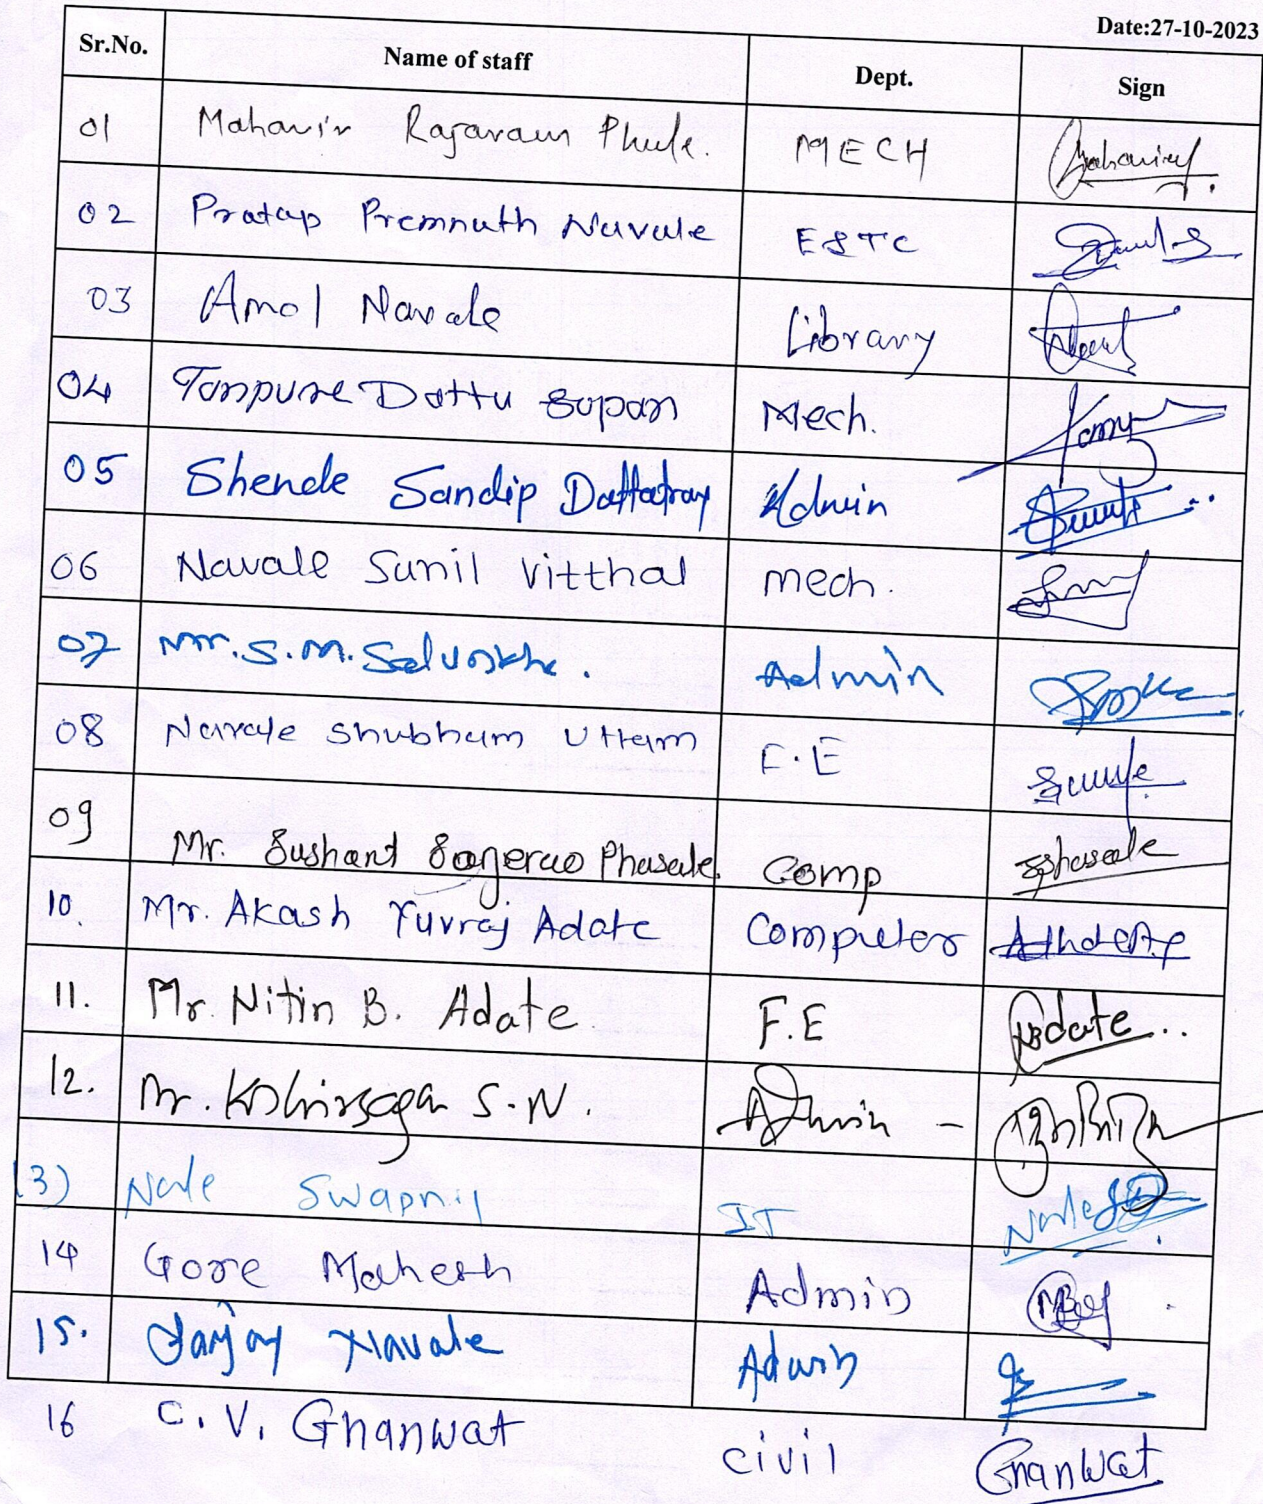 Date:27-10-2023
Sr.No. Name of staff Dept. Sign
01 Mahavir Rajaram Phule. MECH
02 Pratap Premnath Navale E&TC
03 Amol Navale Library
04 Tanpure Dattu Sopan Mech.
05 Shende Sandip Dattatray Admin
06 Navale Sunil Vitthal mech.
07 Mr. S. M. Salunkhe. Admin
08 Navale Shubham Uttam F.E
09 Mr. Sushant Sagerao Phasale. Comp Sphasale
10. Mr. Akash Yuvraj Adate Computer
11. Mr. Nitin B. Adate. F.E Adate..
12. Mr. Kshirsagar S.N. Admin -
13) Nale Swapnil IT Nale
14 Gore Mahesh Admin
15. Sanjay Navale Admin
16 C. V. Ghanwat civil Ghanwat